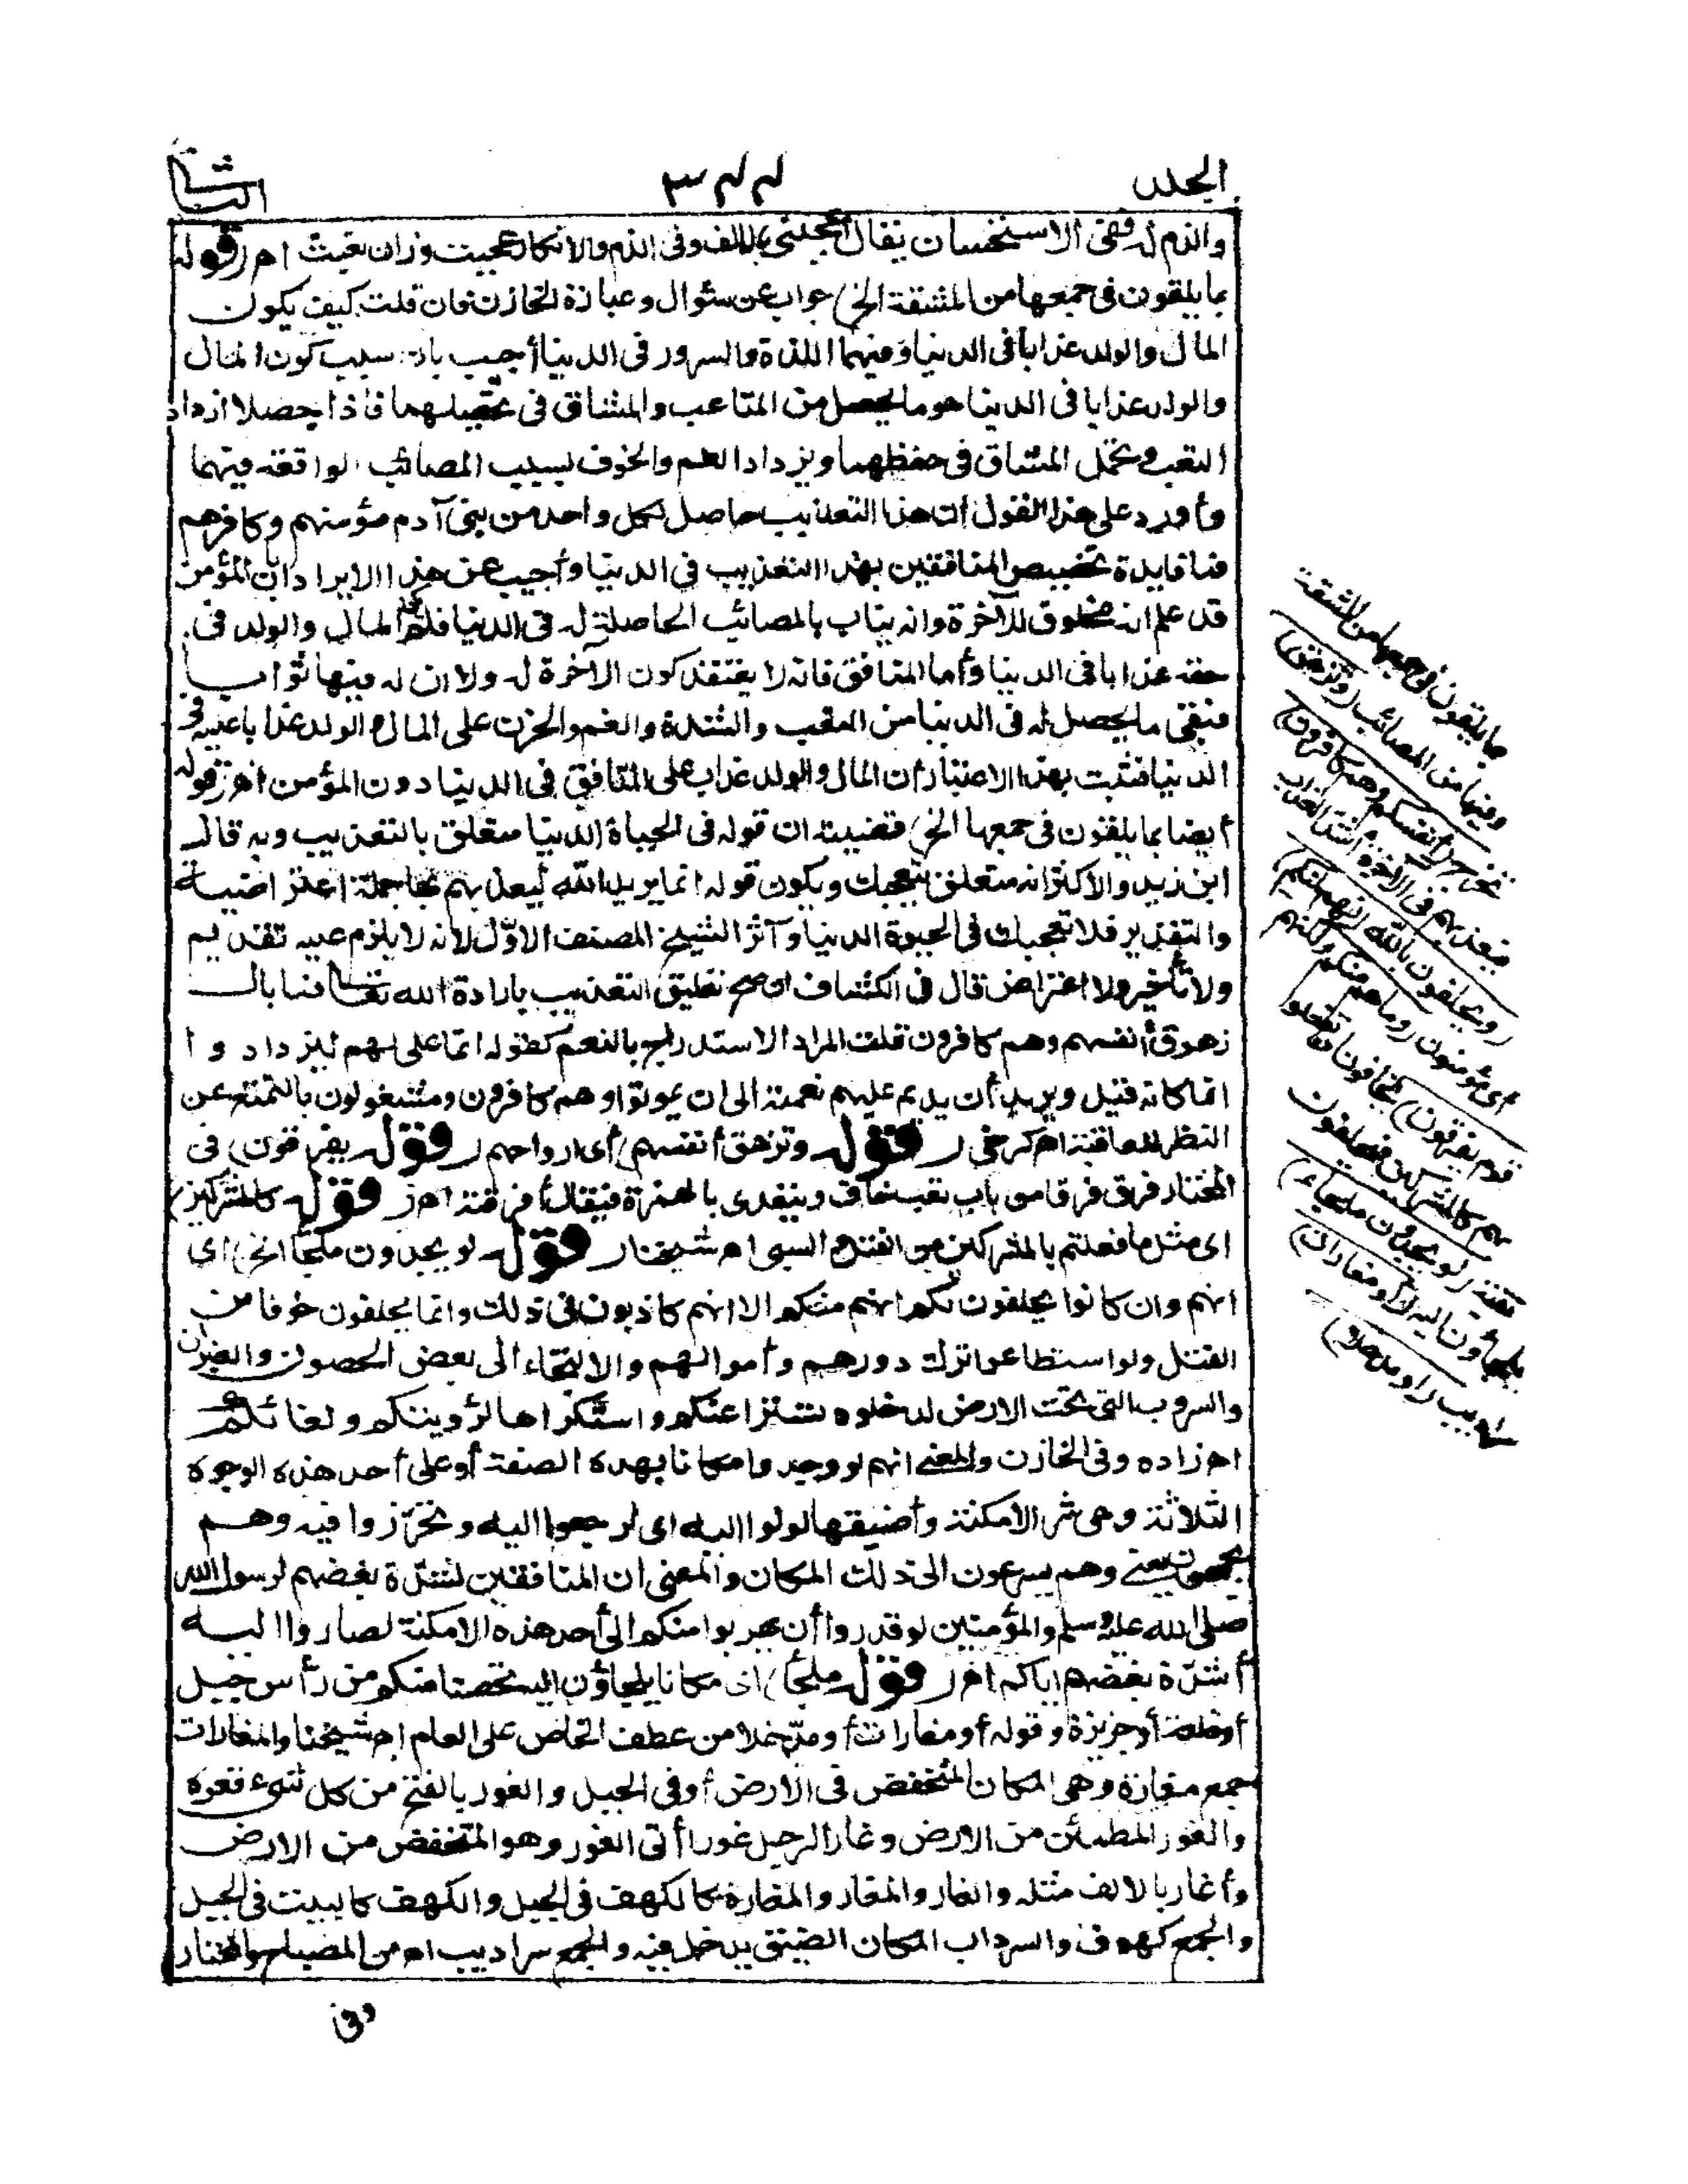 الجلد
٣٤٤
الثانى
والذم له وفى الاستحسان يقال أعجبنى بالالف وفى الذم والانكار عجبت وزان تعبت اهـ (قوله
بما يلقون فى جمعها من المشقة الخ) جواب عن سؤال وعبارة الخازن فان قلت كيف يكون
المال والولد عذابا فى الدنيا وفيهما اللذة والسرور فى الدنيا أجيب بان سبب كون المال
والولد عذابا فى الدنيا هو ما يحصل من المتاعب والمشاق فى تحصيلهما فاذا حصلا ازداد
التعب وتحمل المشاق فى حفظهما ويزداد الغم والخوف بسبب المصائب الواقعة فيهما
وأورد على هذا القول أن هذا التعذيب حاصل لكل واحد من بنى آدم مؤمنهم وكافرهم
فما فايدة تخصيص المنافقين بهذا التعذيب فى الدنيا وأجيب عن هذا الايراد بان المؤمن
قد علم انه مخلوق للآخرة وانه يثاب بالمصائب الحاصلة له فى الدنيا فلم يكن المال والولد فى
حقه عذابا فى الدنيا وأما المنافق فانه لا يعتقد كون الآخرة له ولا ان له فيها ثوابا
فبقى ما يحصل له فى الدنيا من التعب والشدة والغم والحزن على المال والولد عذابا عليه فى
الدنيا فثبت بهذا الاعتبار أن المال والولد عذاب على المنافق فى الدنيا دون المؤمن اهـ (قوله
أيضا بما يلقون فى جمعها الخ) قضيته ان قوله فى الحياة الدنيا متعلق بالتعذيب وبه قال
ابن زيد والأكثر انه متعلق بتعجبك ويكون قوله انما يريد الله ليعذبهم بها جملة اعتراضية
والتقدير فلا تعجبك فى الحيوة الدنيا وآثر الشيخ المصنف الاوّل لانه لا يلزم عليه تقديم
ولا تأخير ولا اعتراض قال فى الكشاف ان صح تعليق التعذيب بارادة الله تعالى فما بال
زهوق أنفسهم وهم كافرون قلت المراد الاستدراج بالنعم كقوله انما نملى لهم ليزدادوا
انما كانه قيل ويريد أن يديم عليهم نعمته الى ان يموتوا وهم كافرون ومشغولون بالتمتع عن
النظر للعاقبة اهـ كرخى (قوله وتزهق أنفسهم) أى ارواحهم (قوله يفرقون) فى
المختار فرق فرقا من باب تعب خاف ويتعدى بالهمزة فيقال أفرقته اهـ (قوله كالمشركين)
اى مثل ما فعلتم بالمشركين من القتل والسبى اهـ شيخنا (قوله لو يجدون ملجأ الخ) اى
انهم وان كانوا يحلفون لكم انهم منكم الا انهم كاذبون فى ذلك وانما يحلفون خوفا من
القتل ولو استطاعوا ترك دورهم وأموالهم والالتجاء الى بعض الحصون والغيران
والسروب التى تحت الارض لدخلوه تسترا عنكم واستكراها لرؤيتكم ولقائكم
اهـ زاده وفى الخازن والمعنى انهم لو وجدوا مكانا بهذه الصفة أو على أحد هذه الوجوه
الثلاثة وهى شر الامكنة وأضيقها لولوا اليه اى لرجعوا اليه وتحرّزوا فيه وهم
يجمحون يعنى وهم يسرعون الى ذلك المكان والمعنى ان المنافقين لشدّة بغضهم لرسول الله
صلى الله عليه وسلم والمؤمنين لو قدروا أن يهربوا منكم الى أحد هذه الامكنة لصاروا اليه
لشدّة بغضهم اياكم اهـ (قوله ملجأ) اى مكانا يلجاؤن اليه تحصنا منكم من رأس جبل
أو قلعة أو جزيرة وقوله أو مغارات أو مدّخلا من عطف الخاص على العام اهـ شيخنا والمغارات
جمع مغارة وهى المكان المنخفض فى الارض أو فى الجبل والغور بالفتح من كل شىء قعره
والغور المطمئن من الارض وغار الرجل غورا أتى الغور وهو المنخفض من الارض
وأغار بالالف مثله والغار والمغار والمغارة كالكهف فى الجبل والكهف كالبيت فى الجبل
والجمع كهوف والسرداب المكان الضيق يدخل فيه والجمع سراديب اهـ من المصباح والمختار
وفى
بما يلقون فى جمعها من المشقة
وفيها من المصائب (وتزهق)
تخرج (أنفسهم وهم كافرون)
فيعذبهم فى الآخرة أشد العذاب
(ويحلفون بالله انهم لمنكم)
أى مؤمنون (وما هم منكم ولكنهم
قوم يفرقون) يخافون أن تفعلوا
بهم كالمشركين فيحلفون
تقية (لو يجدون ملجاء)
يلجاؤن اليه (أو مغارات)
سراديب (أو مدخلا)